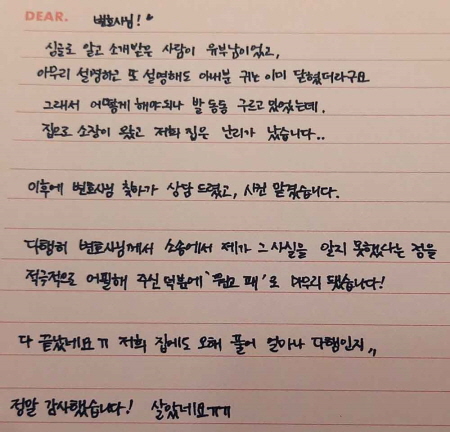 DEAR. 변호사님!
싱글로 알고 소개받은 사람이 유부남이었고,
아무리 설명하고 또 설명해도 아내분 귀는 이미 닫혔더라구요
그래서 어떻게 해야되나 발 동동 구르고 있었는데,
집으로 소장이 왔고 저희 집은 난리가 났습니다..
이후에 변호사님 찾아가 상담 드렸고, 사건 맡겼습니다.
다행히 변호사님께서 소송에서 제가 그 사실을 알지 못했다는 점을
적극적으로 어필해 주신 덕분에 '원고 패'로 마무리 됐습니다!
다 끝났네요 ㅠ 저희 집에도 오해 풀어 얼마나 다행인지,,
정말 감사했습니다! 살았네요ㅠㅠ